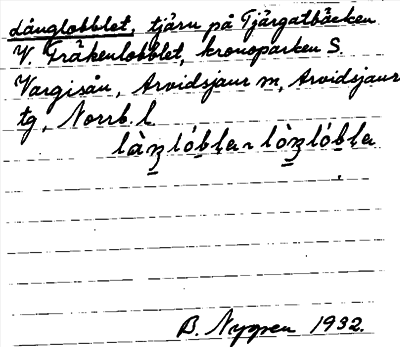 Långlobblet, tjärn på Tjärgatbäcken
V. Fräkenlobblet, kronoparken S.
Vargisån, Arvidsjaur sn, Arvidsjaur
tg, Norrb. l.
làṉẕ lóbḻa ~ lòṉẕlóbḻa
B. Nygren 1932.